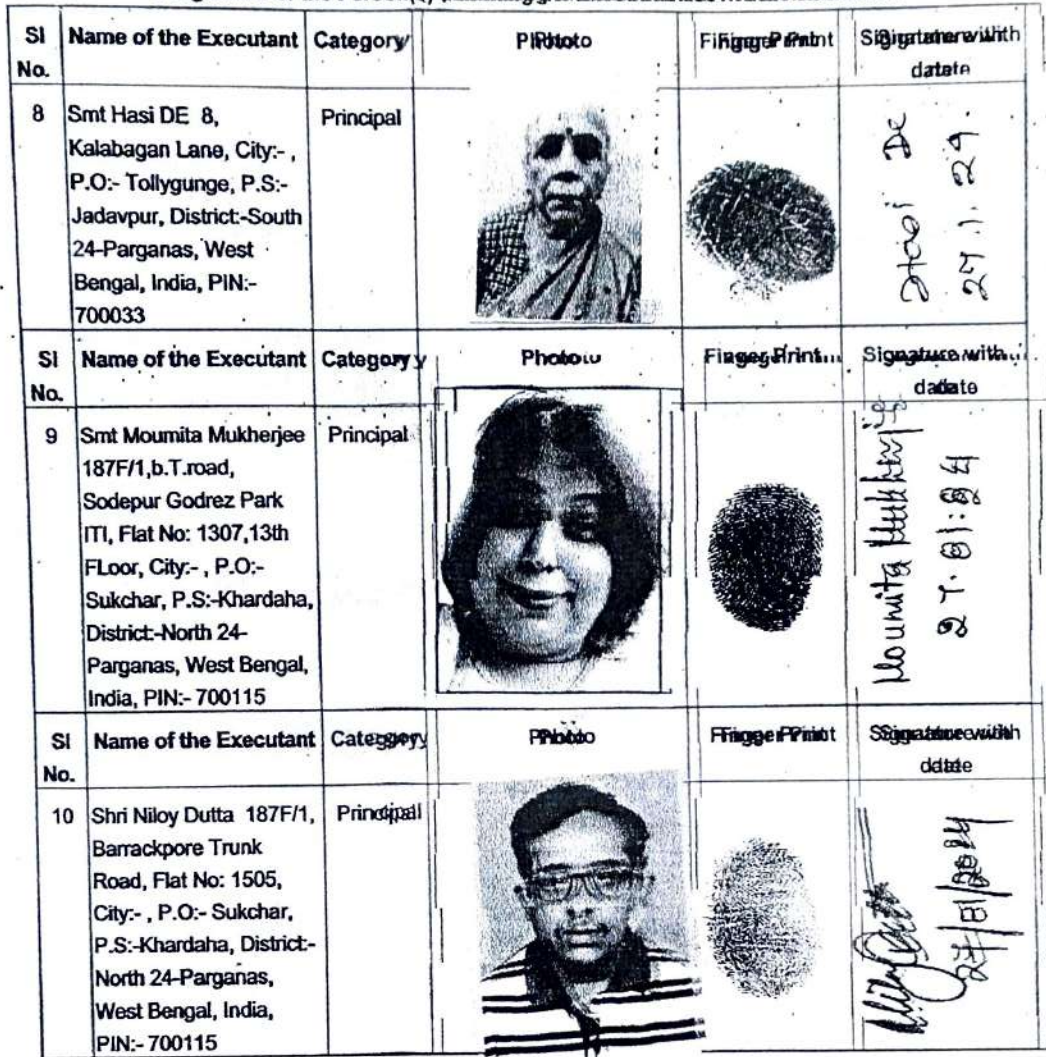 SI No. Name of the Executant Category Photo Finger Print Signature with date
8 Smt Hasi DE 8, Principal
Kalabagan Lane, City:- ,
P.O:- Tollygunge, P.S:-
Jadavpur, District:-South
24-Parganas, West
Bengal, India, PIN:-
700033
Hasi De
27.1.24.
SI No. Name of the Executant Category Photo Finger Print Signature with date
9 Smt Moumita Mukherjee Principal
187F/1,b.T.road,
Sodepur Godrez Park
ITI, Flat No: 1307,13th
FLoor, City:- , P.O:-
Sukchar, P.S:-Khardaha,
District:-North 24-
Parganas, West Bengal,
India, PIN:- 700115
Moumita Mukherjee
27.01.24
SI No. Name of the Executant Category Photo Finger Print Signature with date
10 Shri Niloy Dutta 187F/1, Principal
Barrackpore Trunk
Road, Flat No: 1505,
City:- , P.O:- Sukchar,
P.S:-Khardaha, District:-
North 24-Parganas,
West Bengal, India,
PIN:- 700115
27/01/2024